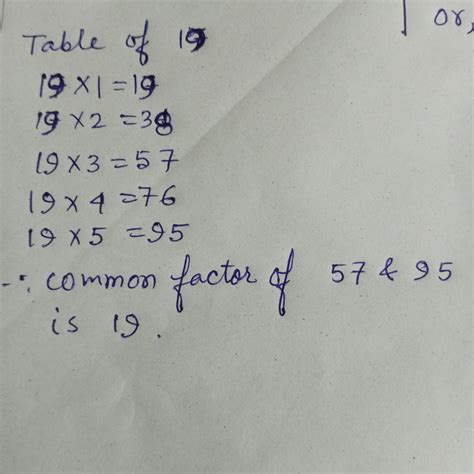 or,
Table of 19
19 × 1 = 19
19 × 2 = 38
19 × 3 = 57
19 × 4 = 76
19 × 5 = 95
∴ common factor of 57 & 95
is 19.